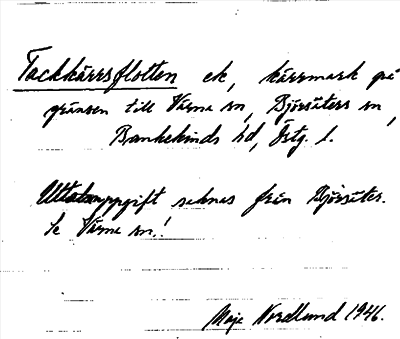 Tackkärrsflotten ek, kärrmark på
gränsen till Värna sn, Björsäters sn,
Bankekinds hd, Östg. l.
Uttalsuppgift saknas från Björsäter.
Se Värna sn.!
Maje Nordlund 1946.